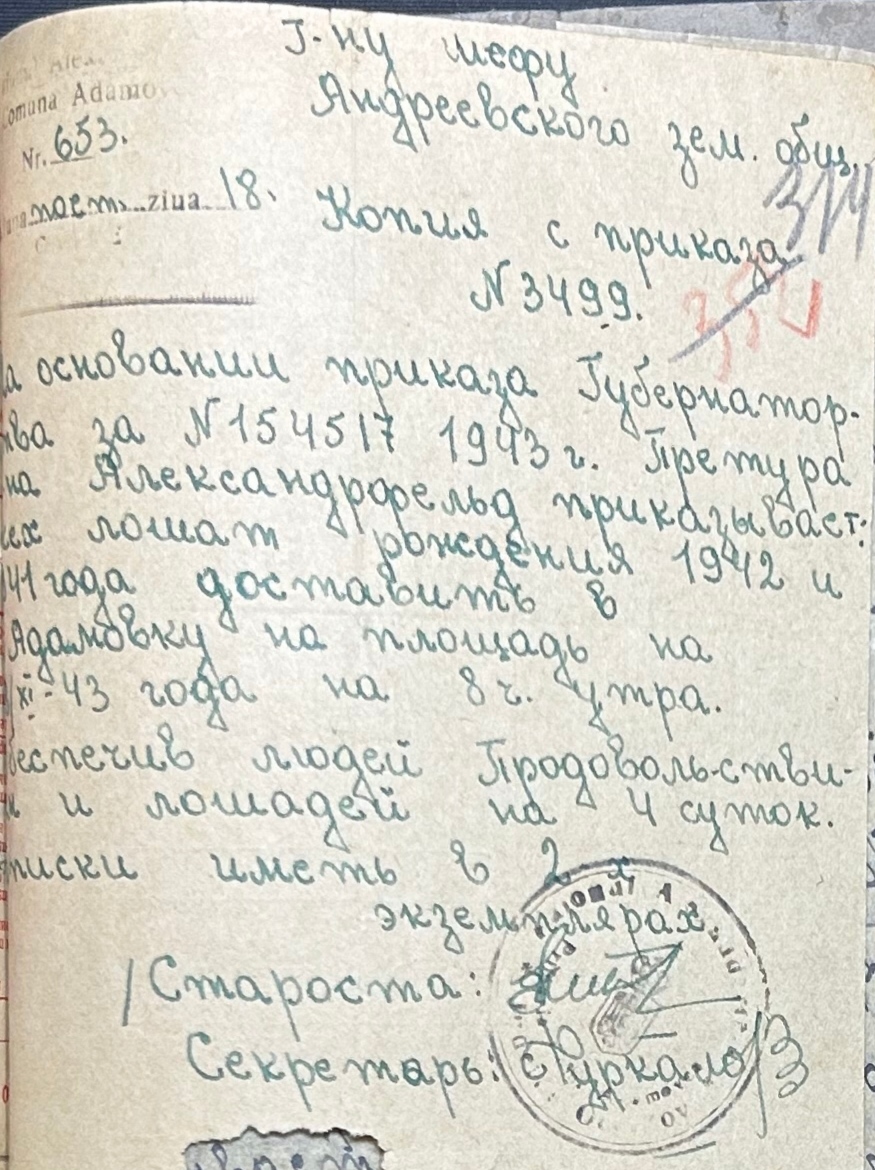 Comuna Adamo
Nr. 653.
поет. ziua 18.
Г-ну шефу
Андреевского зем. общ.
314
Копия с приказа
N 3499.
354
а основании приказа Губернатор-
тва за N 154517 1943 г. Претура
на Александрфельд приказывает:
сех лошат рождения 1942 и
941 года доставить в
Адамовку на площадь на
XI-43 года на 8 ч. утра.
беспечив людей Продоволь-стви-
м и лошадей на 4 суток.
писки иметь в 2 х
экземплярах
/Староста:
Секретарь: